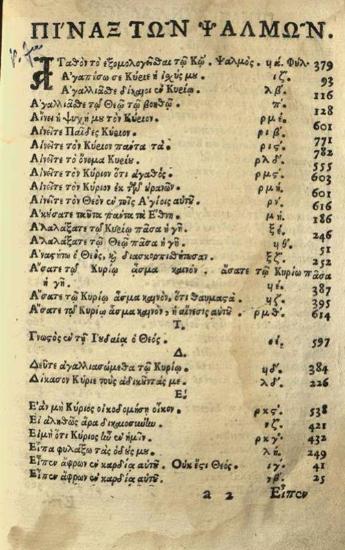 ΠΙΝΑΞ ΤΩΝ ΨΑΛΜΩΝ.
Αγαθὸν τὸ ἐξομολογεῖσθαι τῷ Κῳ. Ψαλμὸς. ϟά. Φύλ. 379
Αγαπήσω σε Κύριε ἡ ἰχύς μου. ιζ΄. 93
Αγαλλιᾶσθε δίκαιοι ἐν Κυρίῳ. λβ΄. 116
Αγαλλιᾶσθε τῷ Θεῷ τῷ βοηθῷ. π΄. 128
Αἴνει ἡ ψυχή μου τὸν Κύριον. ρμέ. 601
Αἰνεῖτε Παῖδες Κύριον. ριβ΄. 771
Αἰνεῖτε τὸν Κύριον πάντα τὰ ρις΄. 782
Αἰνεῖτε τὸ ὄνομα Κυρίου. ρλδ΄. 555
Αἰνεῖτε τὸν Κύριον ὅτι ἀγαθὸς. ρμς΄. 603
Αἰνεῖτε τὸν Κύριον ἐκ τῶν οὐρανῶν ρμή. 601
Αἰνεῖτε τὸν Θεὸν ἐν τοῖς Αγίοις αὐτοῦ. ρν΄. 616
Ακούσατε ταῦτα πάντα τὰ Εθνη μή. 186
Αλαλάξατε τῷ Κυρίῳ πᾶσα ἡ γῆ. ξέ. 246
Αλαλάξατε τῷ Θεῷ πᾶσα ἡ γῆ. ϟθ΄. 51
Αναστήτω ὁ Θεὸς, καὶ διασκορπισθήτωσαν. ξζ΄. 252
Ασατε τῷ Κυρίῳ ᾆσμα καινὸν. ᾄσατε τῷ Κυρίῳ πᾶσα
ἡ γῆ. ϟέ. 387
Ασατε τῷ Κυρίῳ ᾆσμα καινὸν, ὅτι θαυμαςὰ. ϟζ΄. 395
Ασατε τῷ Κυρίῳ ᾆσμα καινὸν, ἡ αἴνεσις αὐτοῦ. ρμθ΄. 614
Γ.
Γνωςὸς ἐν τῇ Ιουδαίᾳ ὁ Θεὸς. οέ. 597
Δ.
Δεῦτε ἀγαλλιασώμεθα τῷ Κυρίῳ. ϟδ΄. 384
Δίκασον Κύριε τοὺς ἀδικοῦντάς με. λδ΄. 226
Ε.
Εὰν μὴ Κύριος οἰκοδομήσῃ οἶκον. ρκς΄. 538
Εἰ ἀληθῶς ἄρα δικαιοσύνην νζ΄. 421
Εἰ μὴ ὅτι Κύριος ἦν ἐν ἡμῖν. ρκγ΄. 432
Εἶπα φυλάξω τὰς ὁδούς μου. λή. 249
Εἶπεν ἄφρων ἐν καρδίᾳ αὐτοῦ. Οὐκ ἔςι Θεὸς. ιγ΄. 41
Εἶπεν ἄφρων ἐν καρδίᾳ αὐτοῦ. νβ΄. 25
a 2 Εἶπεν